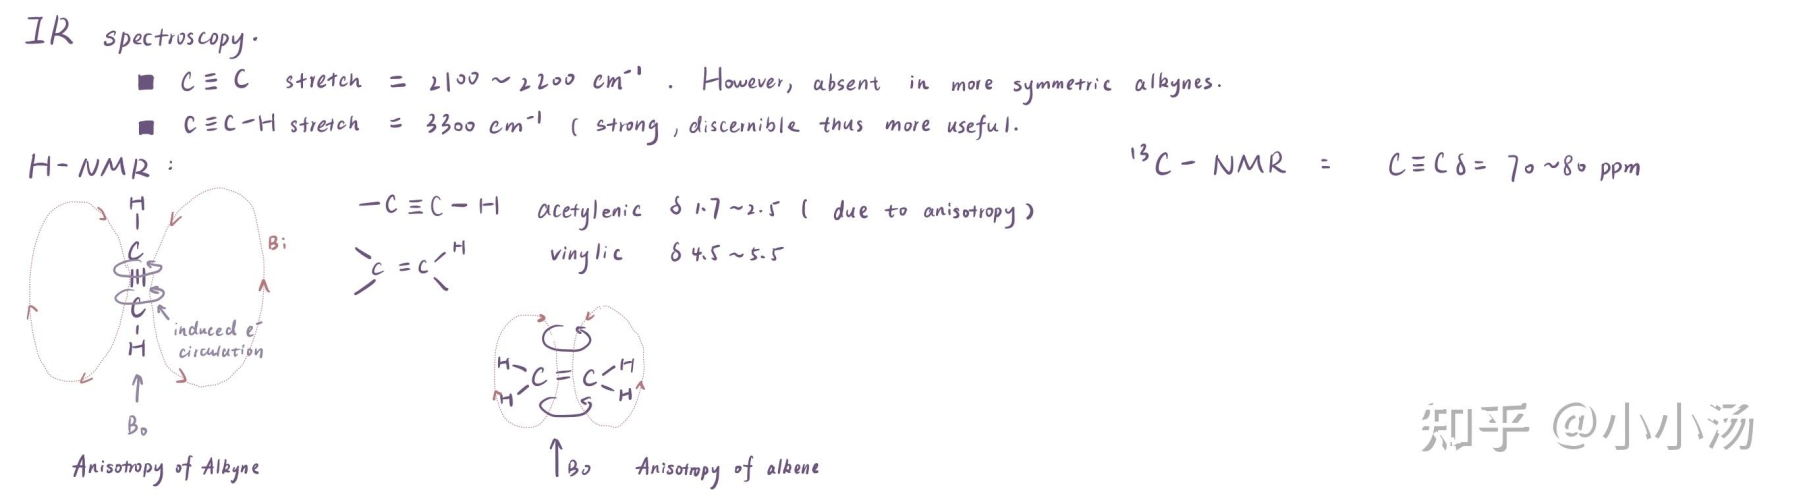 IR spectroscopy.
■ C≡C stretch = 2100~2200 cm⁻¹. However, absent in more symmetric alkynes.
■ C≡C-H stretch = 3300 cm⁻¹ ( strong, discernible thus more useful.
H-NMR:
¹³C-NMR = C≡C δ= 70~80 ppm
-C≡C-H acetylenic δ 1.7~2.5 ( due to anisotropy)
C=C H vinylic δ 4.5~5.5
H
C
Bi
C
H
induced e⁻
circulation
B₀
Anisotropy of Alkyne
H H
C=C
H H
B₀ Anisotropy of alkene
知乎 @小小汤